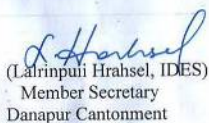 L Hrahsel
(Lalrinpuii Hrahsel, IDES)
Member Secretary
Danapur Cantonment